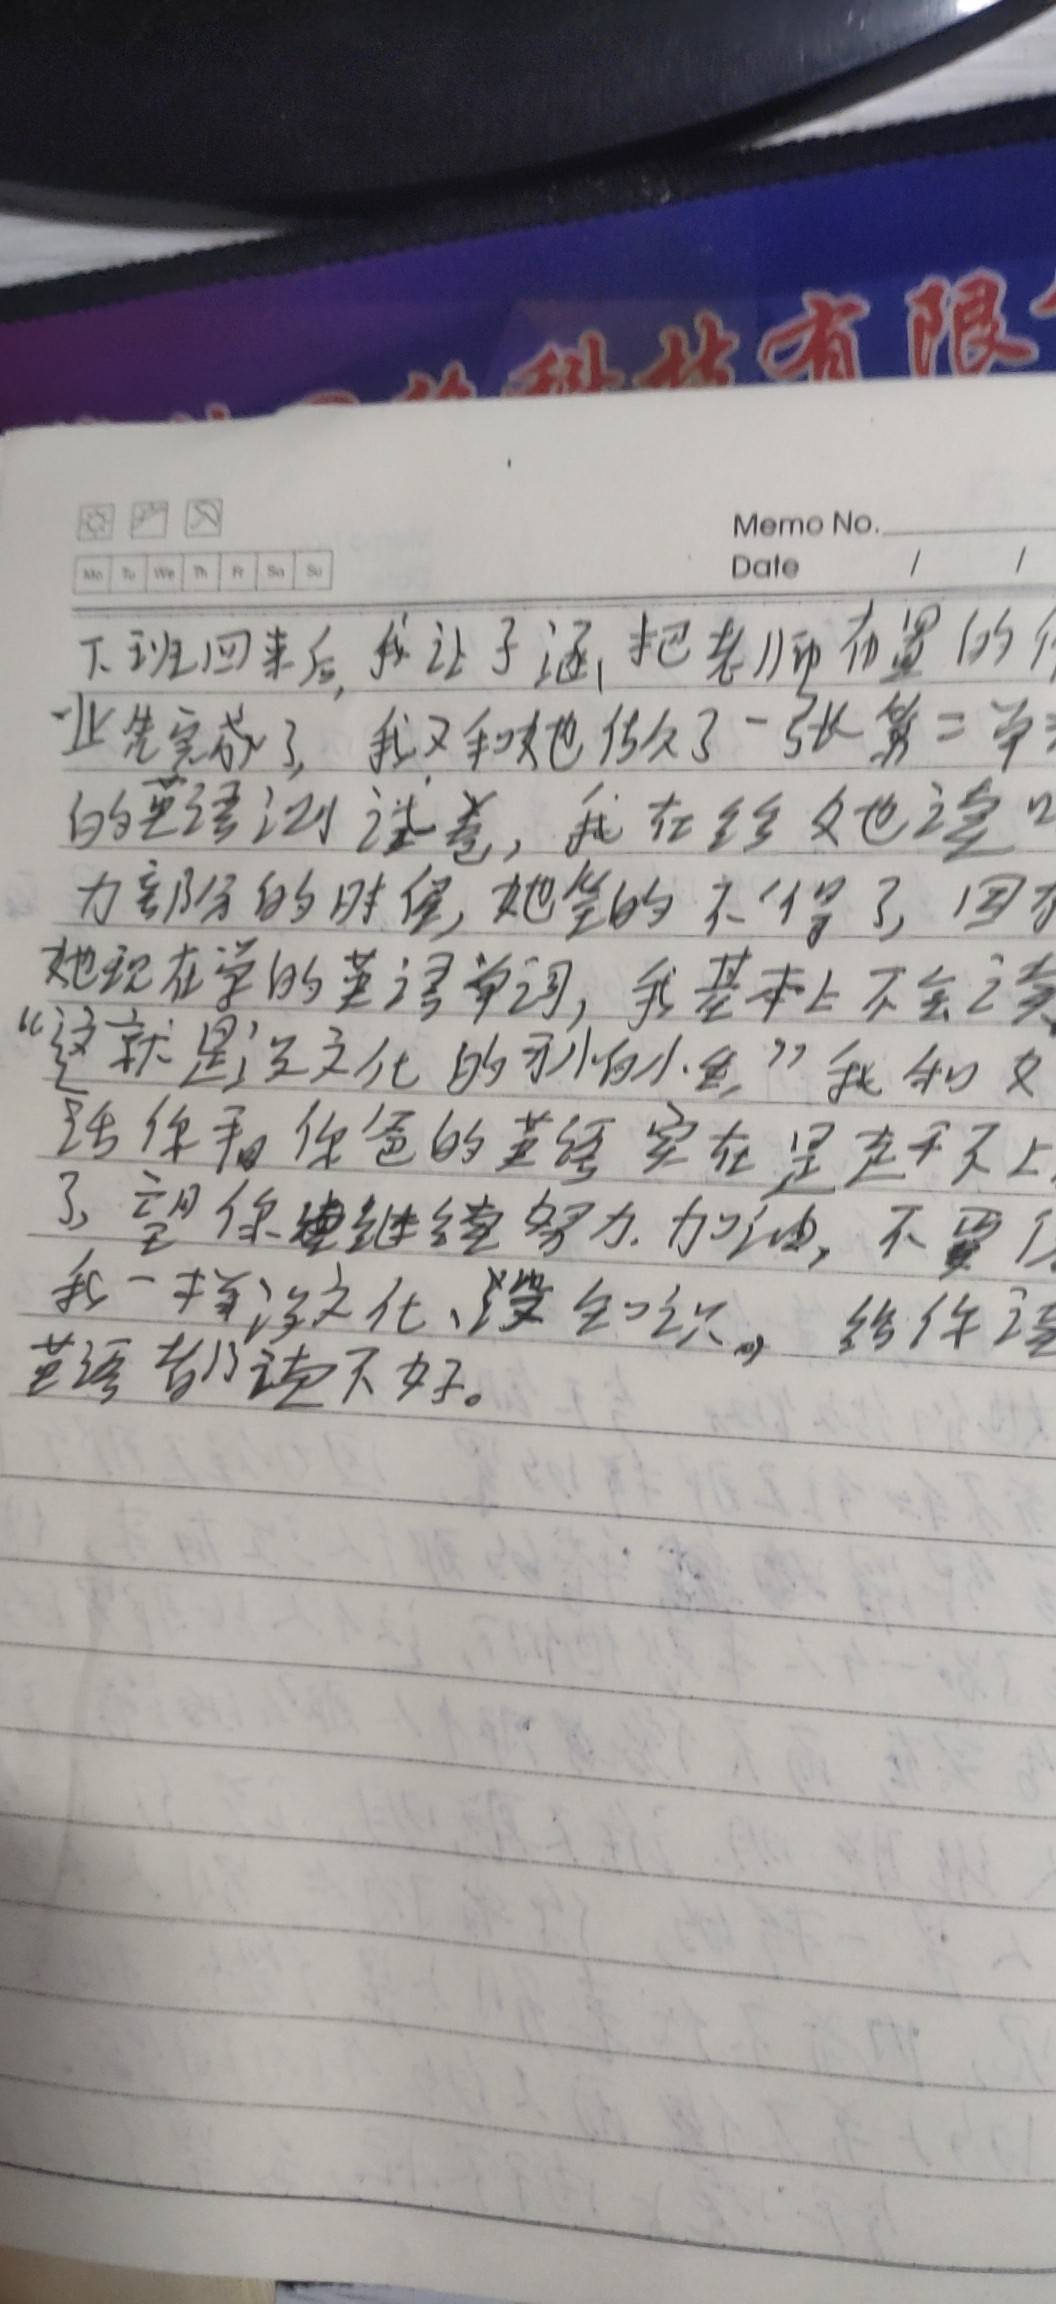 科技有限
Memo No.
Mo Tu We Th Fr Sa Su
Date / /
下班回来后,我让子涵,把老师布置的
业先完成了,我又和她做了一张第二单
的英语测试卷,我在给她读
力部分的时候,她笑的不得了,因
她现在学的英语单词,我基本上不会读
“这就是没文化的 ”我和
话你和你爸的英语实在是走不上
了,望你继续努力.加油,不要
我一样没文化、没知识。给你读
英语都读不好。